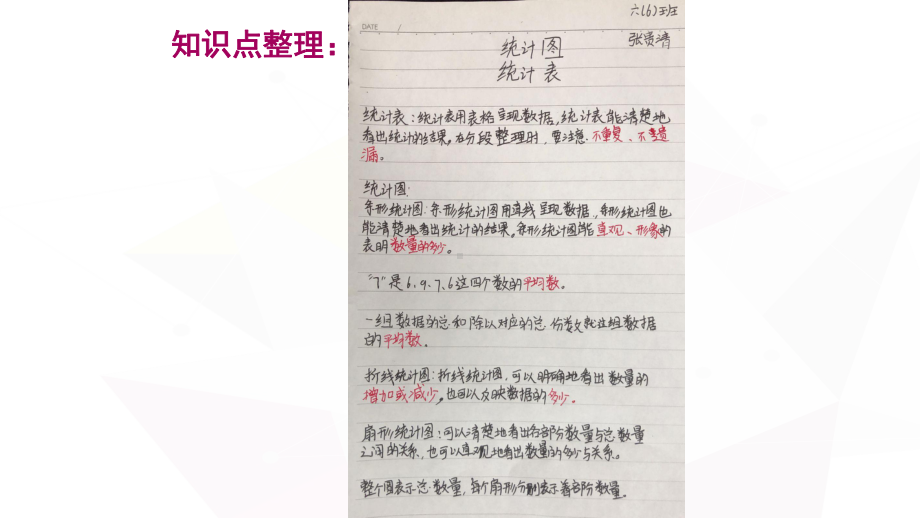 知识点整理：
六(6)班
DATE
张贤清
统计图
统计表
统计表：统计表用表格呈现数据，统计表能清楚地
看出统计的结果。在分段整理时，要注意不重复、不遗
漏。
统计图：
条形统计图：条形统计图用直线呈现数据，条形统计图也
能清楚地看出统计的结果。条形统计图能直观、形象的
表明数量的多少。
“7”是6、9、7、6这四个数的平均数。
一组数据的总和除以对应的总份数就这组数据
的平均数。
折线统计图：折线统计图，可以明确地看出数量的
增加或减少，也可以反映数据的多少。
扇形统计图：可以清楚地看出各部分数量与总数量
之间的关系，也可以直观地看出数量的多少与关系。
整个图表示总数量，每个扇形分别表示着部分数量。